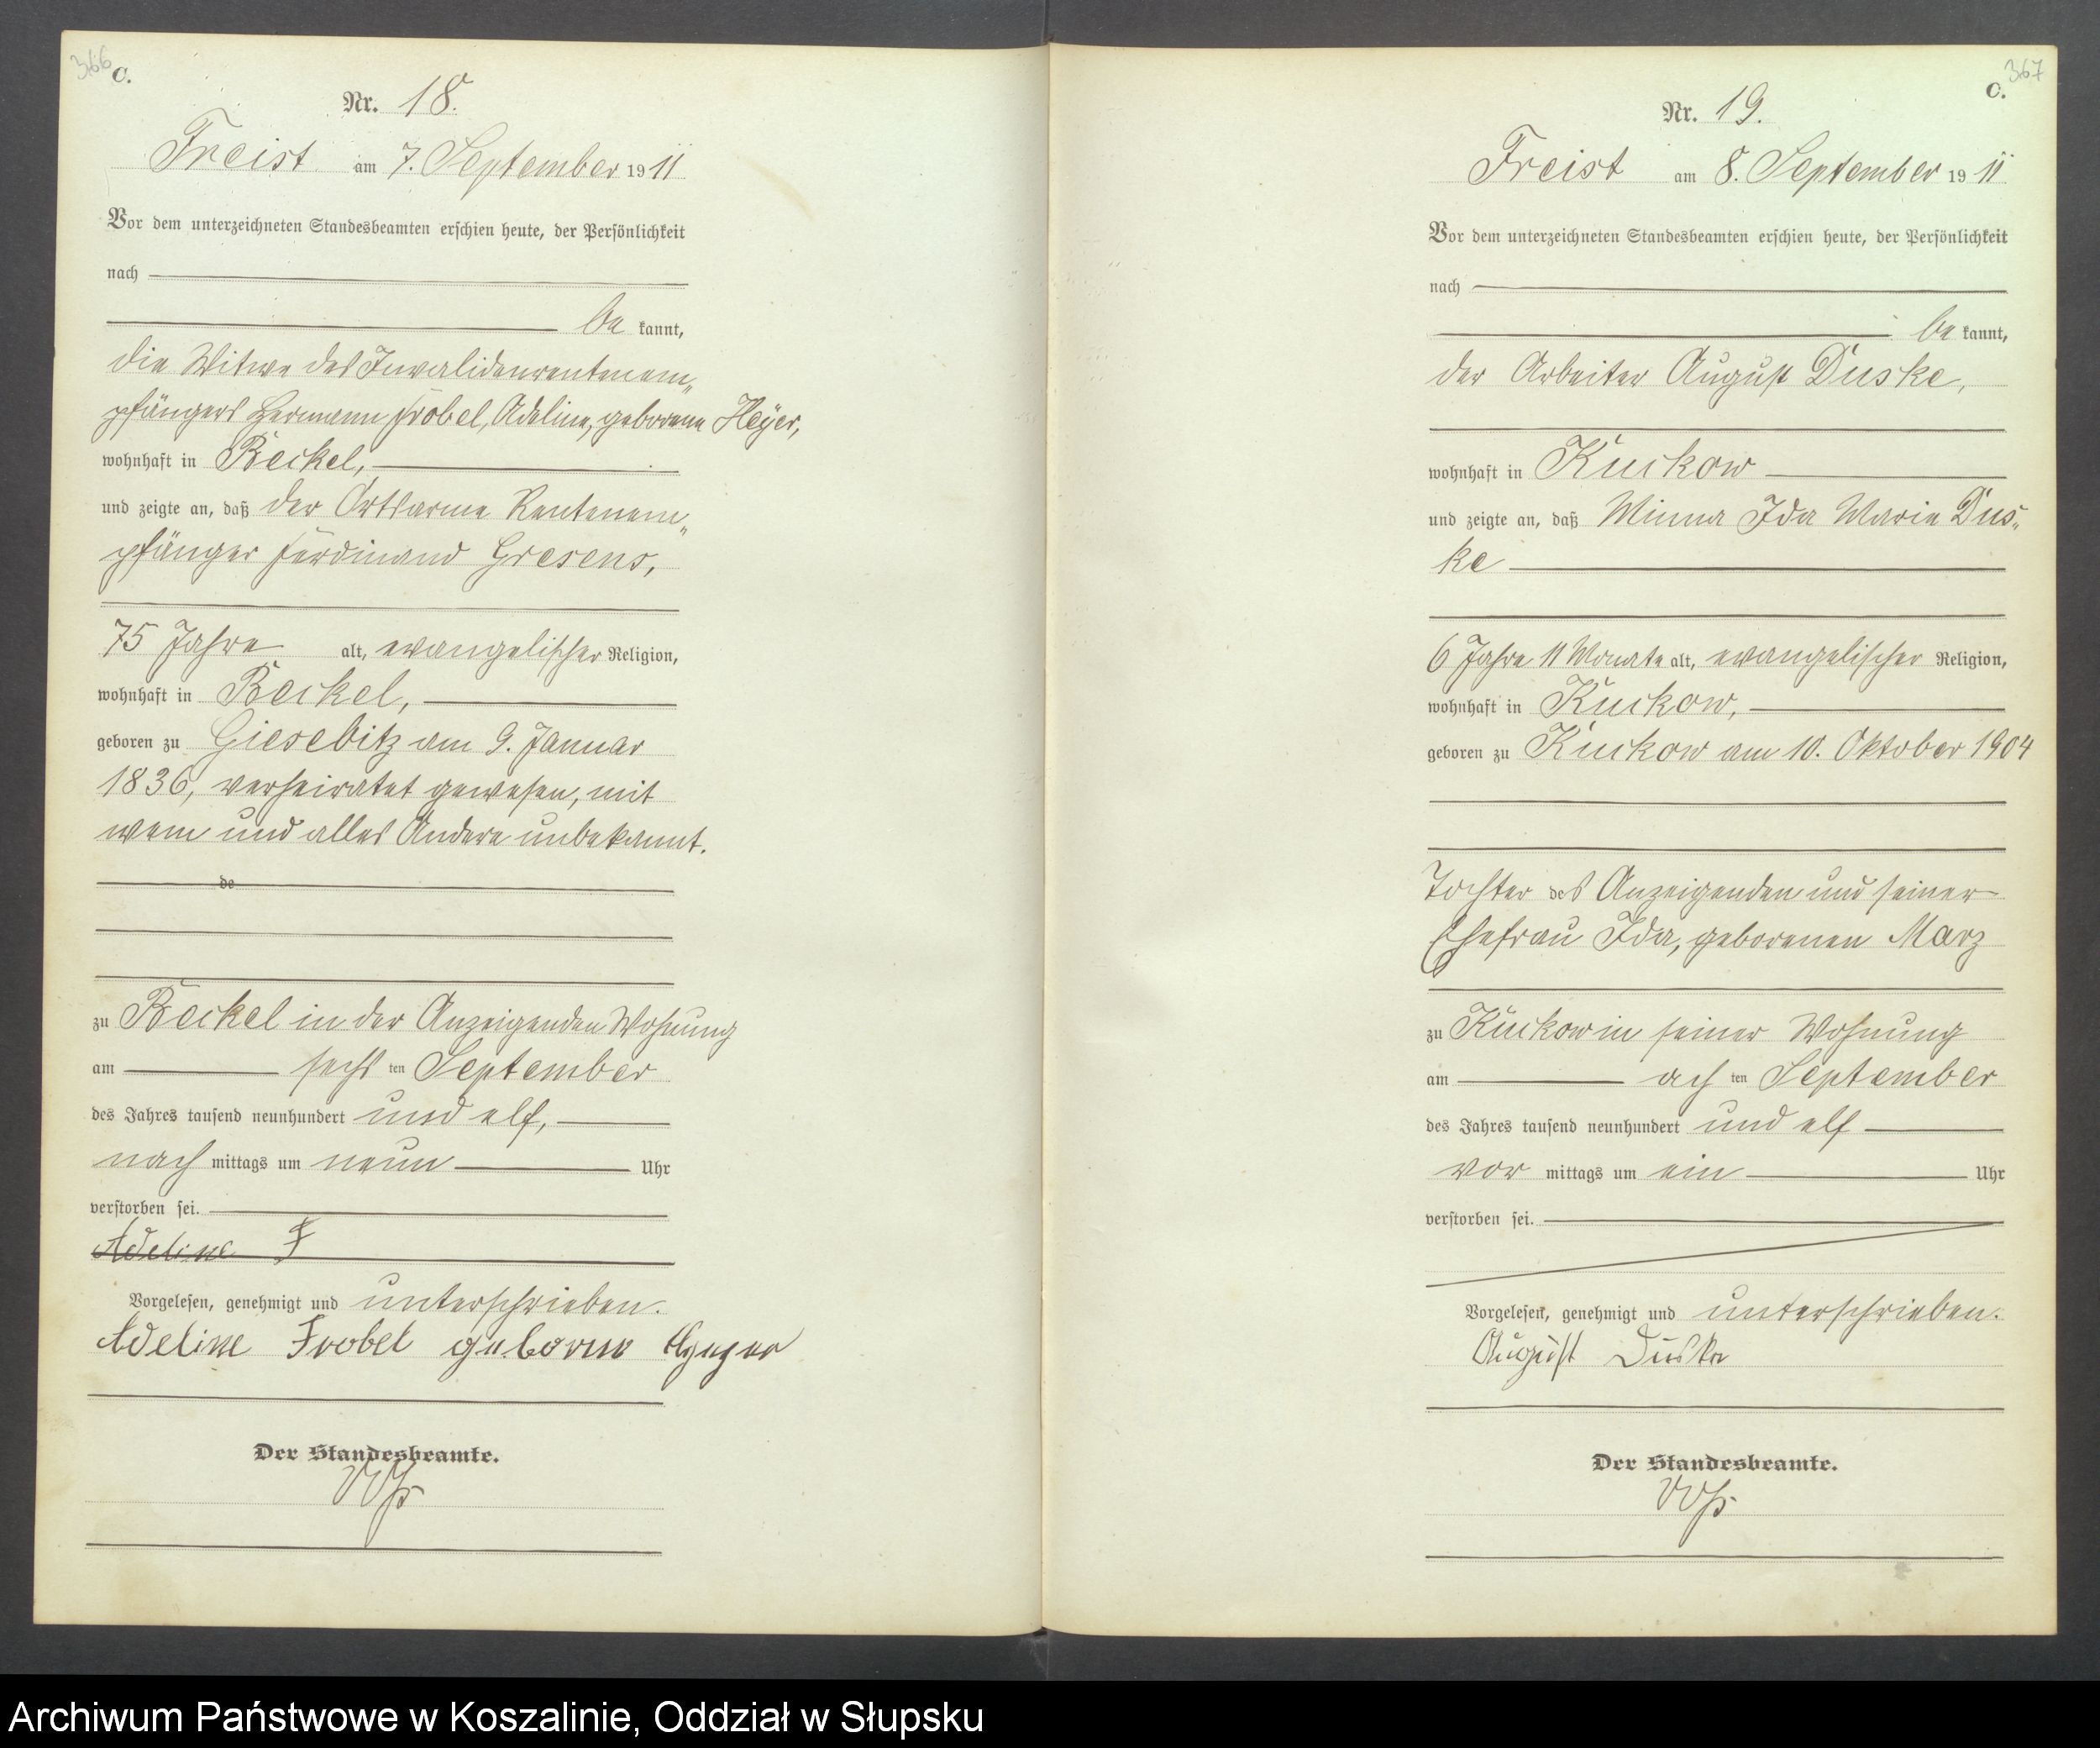 366
C.
Nr. 18.
Freist am 7. September 1911
Vor dem unterzeichneten Standesbeamten erschien heute, der Persönlichkeit
nach
be kannt,
die Witwe des Invalidenrentenem„
pfängers Hermann Frobel, Adeline, geborene Heyer,
wohnhaft in Beckel,
und zeigte an, daß der Ortsarme Rentenem„
pfänger Ferdinand Gresens,
75 Jahre alt, evangelischer Religion,
wohnhaft in Beckel,
geboren zu Giesebitz am 9. Januar
1836, verheiratet gewesen, mit
wem und alles Andere unbekannt.
de
zu Beckel in der Anzeigenden Wohnung
am sechs ten September
des Jahres tausend neunhundert und elf,
nach mittags um neun Uhr
verstorben sei.
Adeline F
Vorgelesen, genehmigt und unterschrieben.
Adeline Frobel geborne
Der Standesbeamte.
367
C.
Nr. 19.
Freist am 8. September 1911
Vor dem unterzeichneten Standesbeamten erschien heute, der Persönlichkeit
nach
be kannt,
der Arbeiter August Duske,
wohnhaft in Kuckow
und zeigte an, daß Minna Ida Marie Dus„
ke
6 Jahre 11 Monate alt, evangelischer Religion,
wohnhaft in Kuckow,
geboren zu Kuckow am 10. Oktober 1904
Tochter des Anzeigenden und seiner
Ehefrau Ida, geborenen Marz
zu Kuckow in seiner Wohnung
am ach ten September
des Jahres tausend neunhundert und elf
vor mittags um ein Uhr
verstorben sei.
Vorgelesen, genehmigt und unterschrieben.
August Duske
Der Standesbeamte.
Archiwum Państwowe w Koszalinie, Oddział w Słupsku